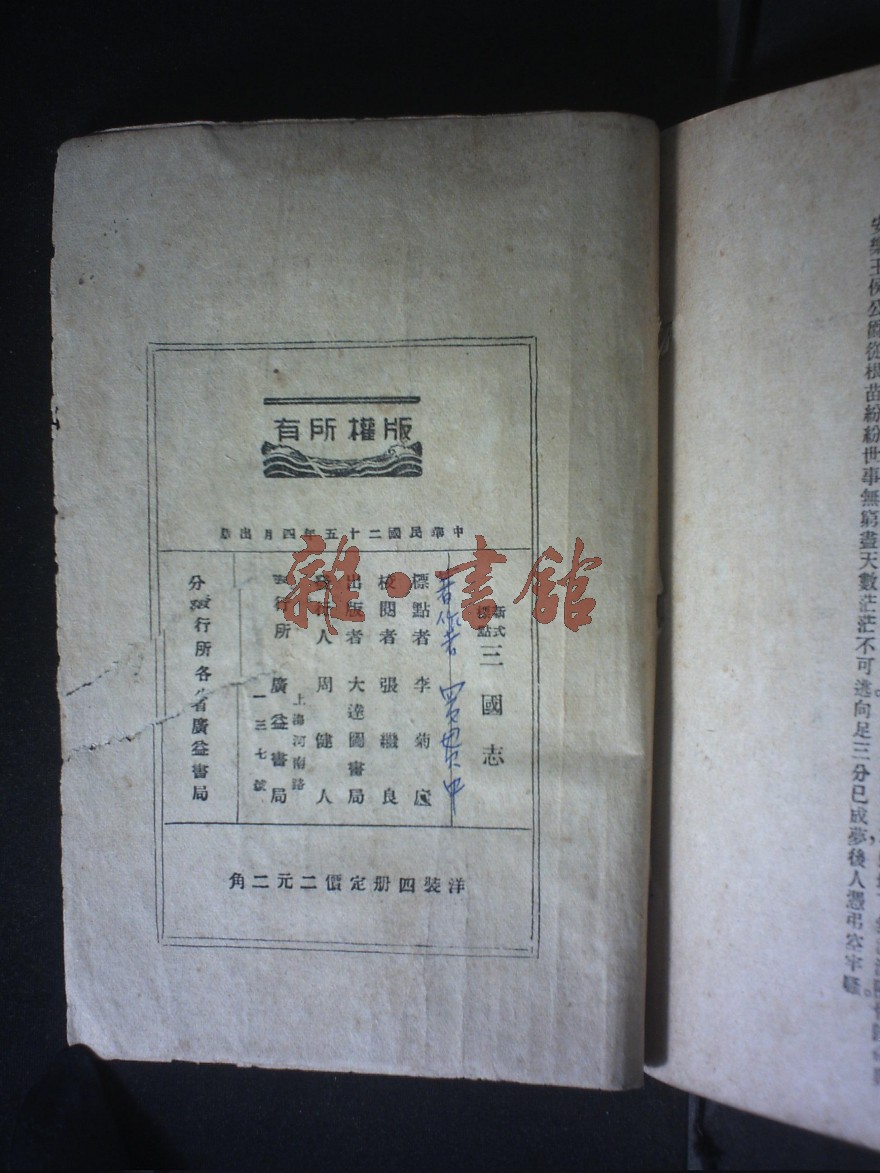 版權所有
中華民國二十五年四月出版
新式標點 三國志
著作者
標點者 李菊廬
校閱者 張繼良
出版者 大達圖書局
發行人 周健人
發行所 廣益書局
上海河南路
一三七號
分發行所各省廣益書局
洋裝四册定價二元二角
雜·書館
安樂王侯公爵從根苗紛紛世事無窮盡天數茫茫不可逃向足三分已成夢後人憑弔空牢騷。